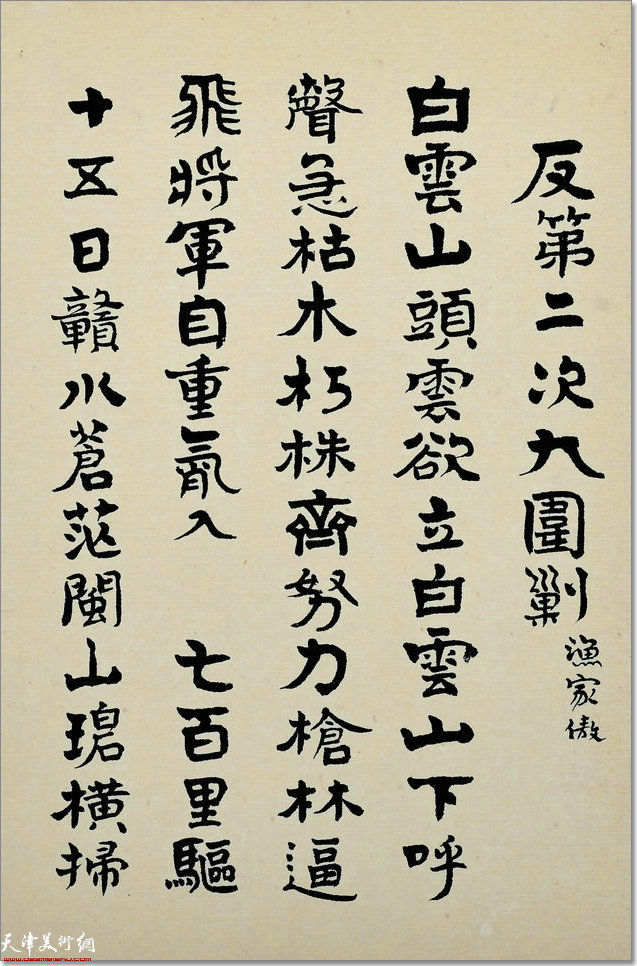 反第二次大圍剿
漁家傲
白雲山頭雲欲立白雲山下呼
聲急枯木朽株齊努力槍林逼
飛將軍自重氣入 七百里驅
十五日贛水蒼茫閩山碧橫掃
天津美術網